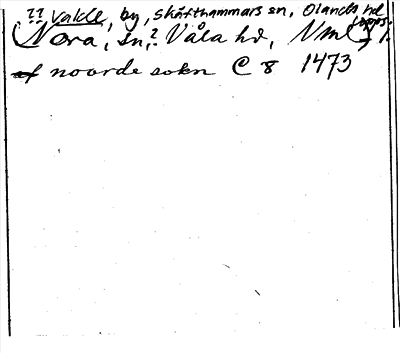 ?? Vakle, by, Skäfthammars sn, Olands hd
Upps.
(Nora, sn,? Våla hd, Vml),
af noorde sokn C 8 1473